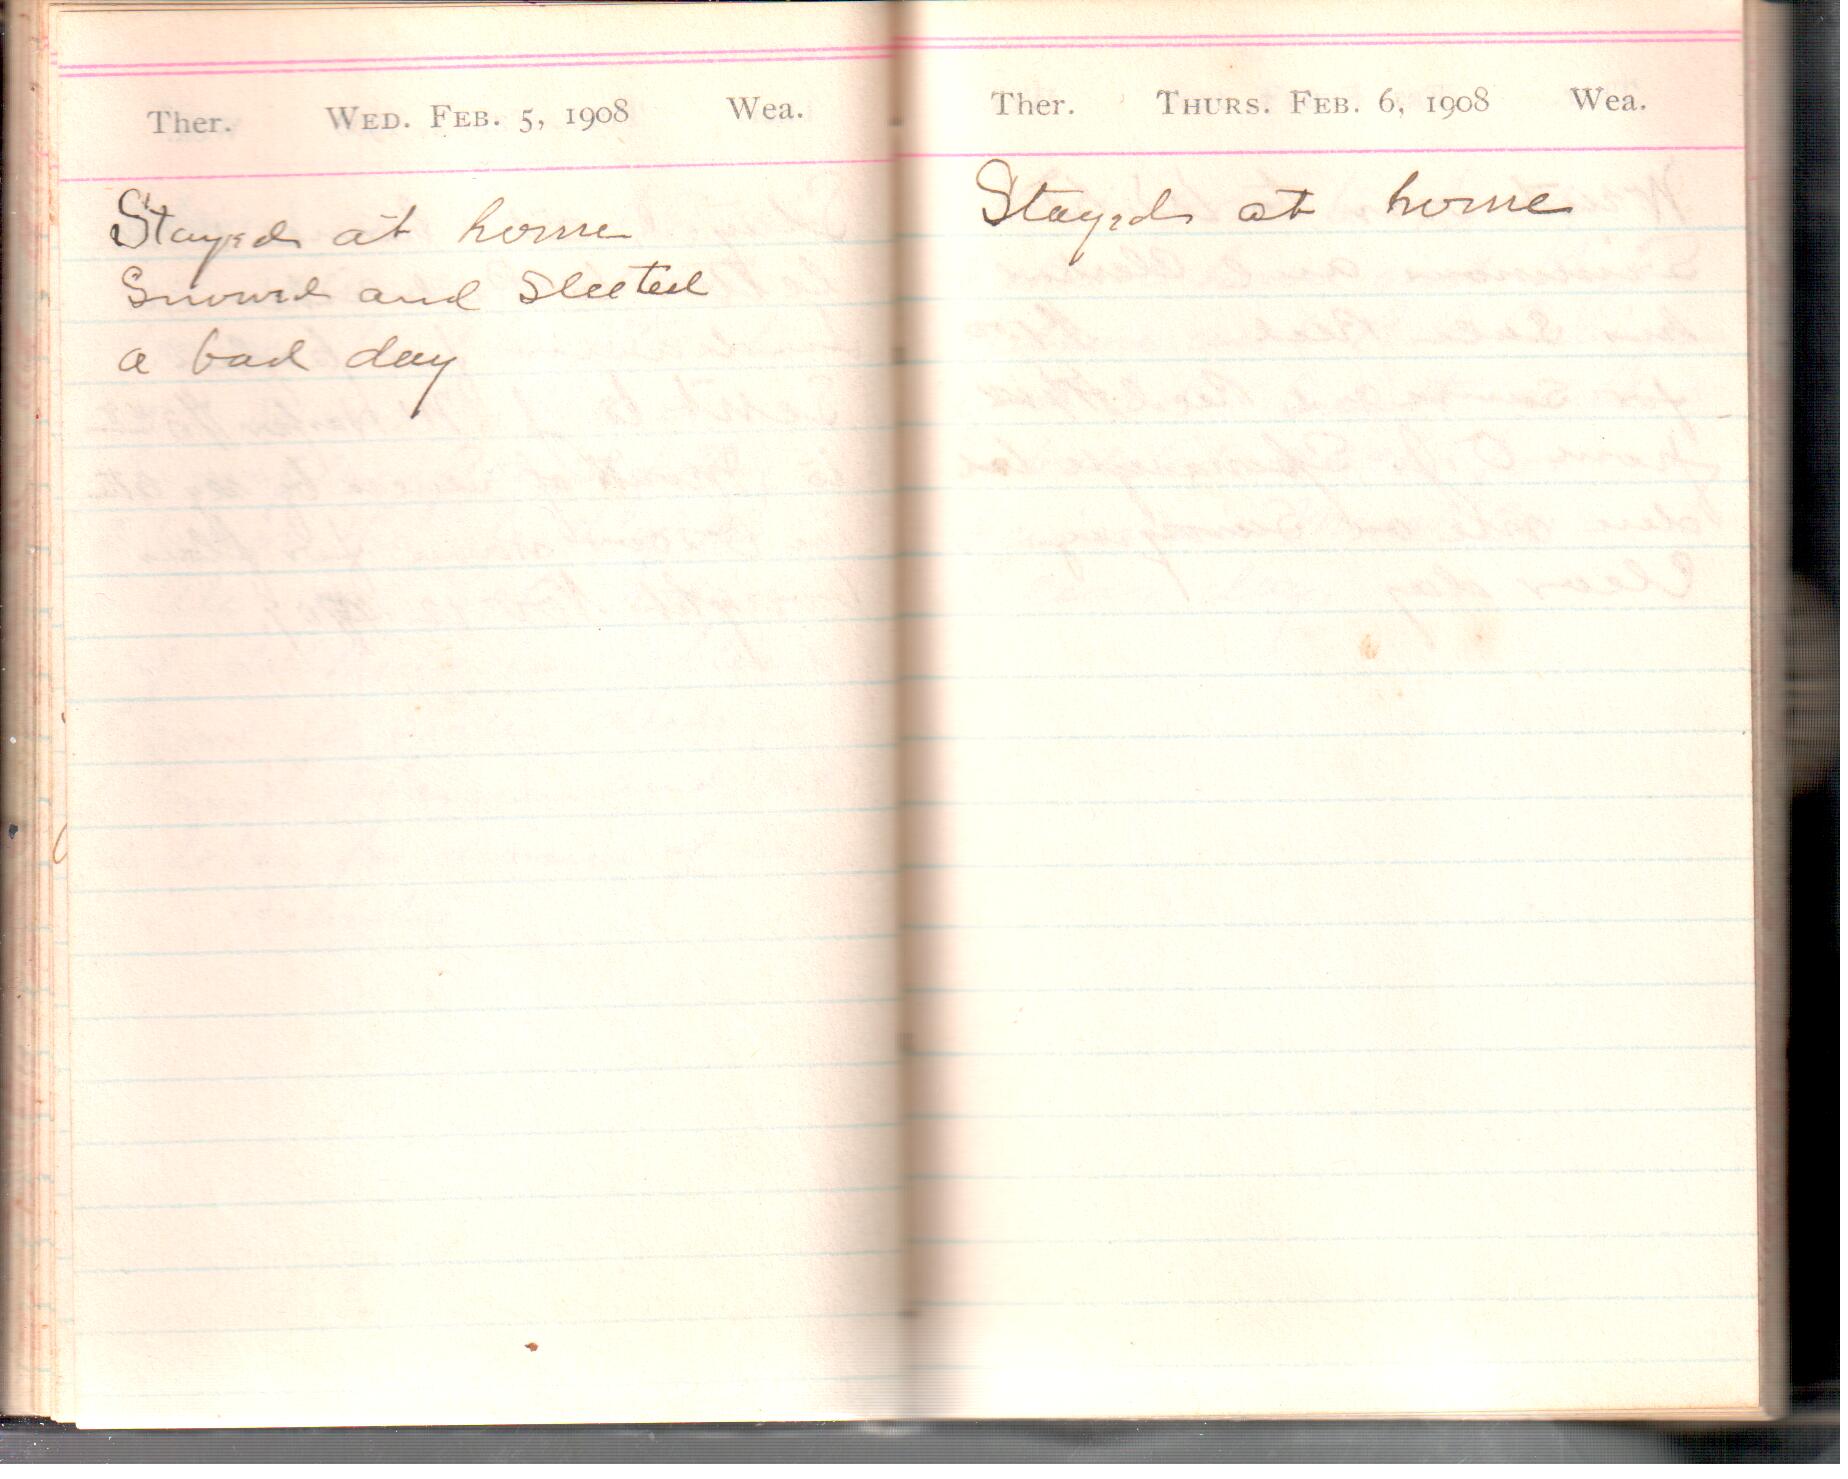 Ther. WED. FEB. 5, 1908 Wea.
Stayed at home
Snowed and Sleeted
a bad day
Ther. THURS. FEB. 6, 1908 Wea.
Stayed at home